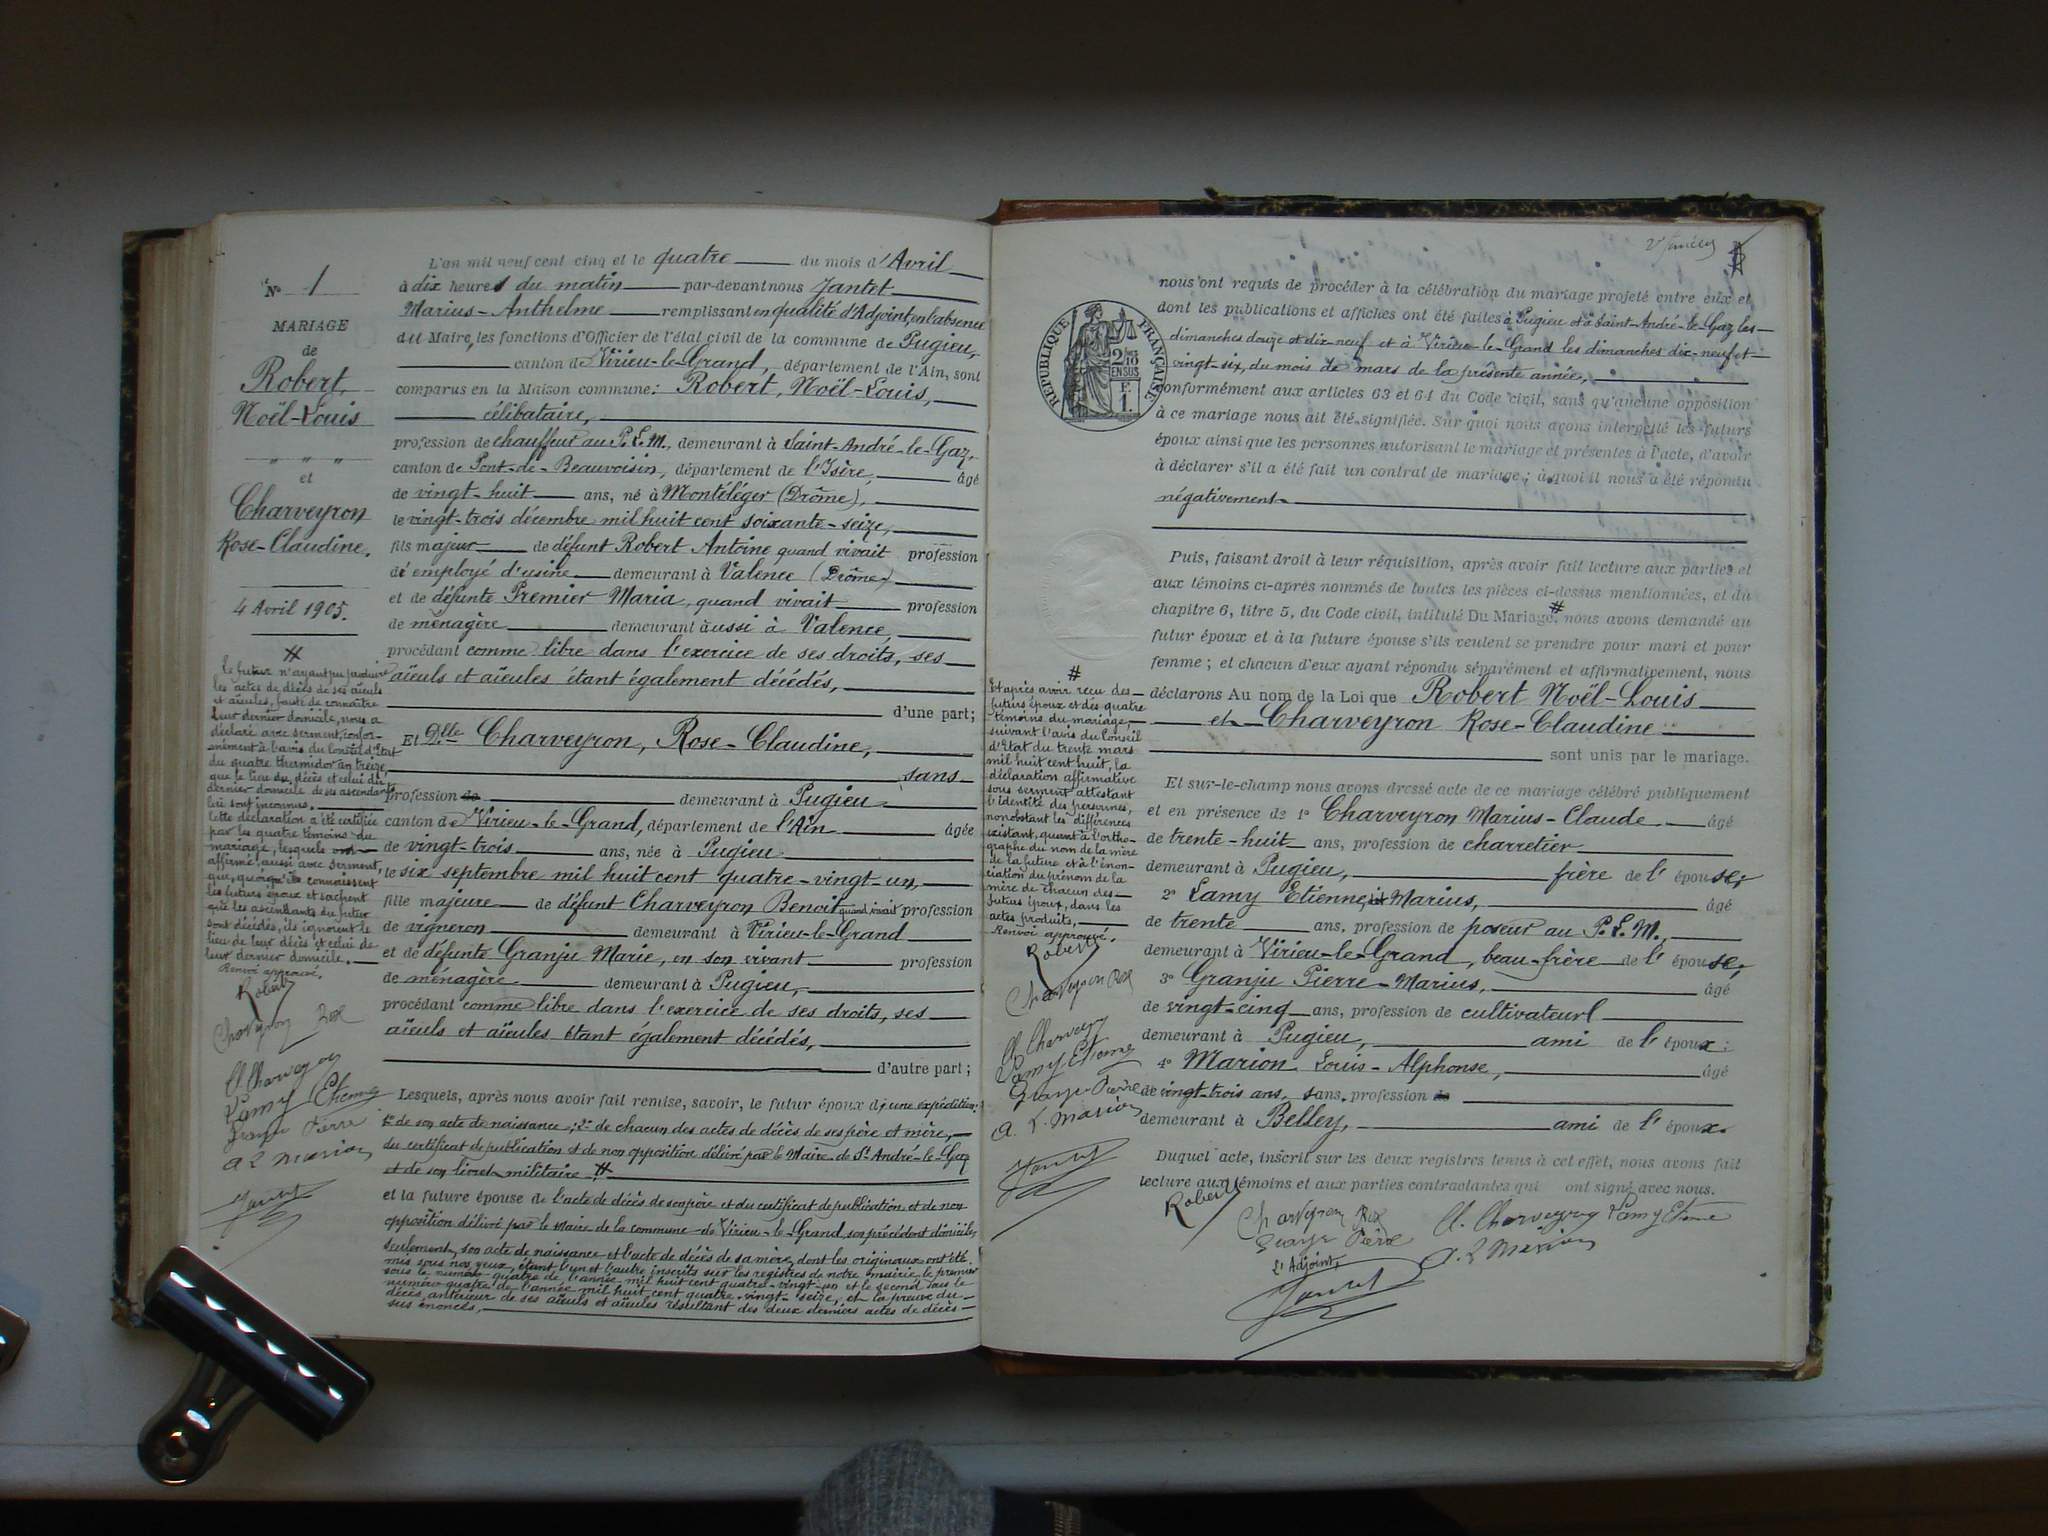 N° 1
MARIAGE
de
Robert,
Noël-Louis
" " "
et
Charveyron
Rose-Claudine.
4 Avril 1905.
#
Le futur n'ayant pu produire
les actes de décès de ses aïeuls
et aïeules, faute de connaître
leur dernier domicile, nous a
déclaré avec serment, confor-
mément à l'avis du Conseil d'Etat
du quatre thermidor an treize,
que le lieu du décès et celui du
dernier domicile de ses ascendants
lui sont inconnus.
Cette déclaration a été certifiée
par les quatre témoins du
mariage, lesquels ont
affirmé, aussi avec serment,
que, quoiqu'ils connaissent
les futurs époux et sachent
que les ascendants du futur
sont décédés, ils ignorent le
lieu de leur décès et celui de
leur dernier domicile.
Renvoi approuvé.
Robert
Charveyron Rose
Cl. Charveyron
Lamy Etienne
Granju Pierre
A L Marion
Jantet
L'an mil neuf cent cinq et le quatre du mois d'Avril
à dix heures du matin par-devant nous Jantet
Marius-Anthelme remplissant en qualité d'Adjoint, en l'absence
du Maire, les fonctions d'Officier de l'état civil de la commune de Pugieu,
canton de Virieu-le-Grand, département de l'Ain, sont
comparus en la Maison commune: Robert, Noël-Louis,
célibataire,
profession de chauffeur au P.L.M., demeurant à Saint-André-le-Gaz,
canton de Pont-de-Beauvoisin, département de l'Isère, âgé
de vingt-huit ans, né à Montéléger (Drôme),
le vingt-trois décembre mil huit cent soixante-seize,
fils majeur de défunt Robert Antoine quand vivait profession
d'employé d'usine demeurant à Valence (Drôme)
et de défunte Premier Maria, quand vivait profession
de ménagère demeurant aussi à Valence,
procédant comme libre dans l'exercice de ses droits, ses
aïeuls et aïeules étant également décédés,
d'une part;
Et Dlle Charveyron, Rose-Claudine,
sans
profession de demeurant à Pugieu
canton de Virieu-le-Grand, département de l'Ain âgée
de vingt-trois ans, née à Pugieu
le six septembre mil huit cent quatre-vingt-un,
fille majeure de défunt Charveyron Benoît quand vivait profession
de vigneron demeurant à Virieu-le-Grand
et de défunte Granju Marie, en son vivant profession
de ménagère demeurant à Pugieu,
procédant comme libre dans l'exercice de ses droits, ses
aïeuls et aïeules étant également décédés,
d'autre part;
Lesquels, après nous avoir fait remise, savoir, le futur époux d'une expédition:
1° de son acte de naissance; 2° de chacun des actes de décès de ses père et mère,
du certificat de publication et de non opposition délivré par le Maire de St André-le-Gaz
et de son livret militaire #
et la future épouse de l'acte de décès de son père et du certificat de publication et de non
opposition délivré par le Maire de la commune de Virieu-le-Grand, son précédent domicile,
seulement, son acte de naissance et l'acte de décès de sa mère, dont les originaux ont été
mis sous nos yeux, étant l'un et l'autre inscrits sur les registres de notre mairie, le premier
sous le numéro quatre de l'année mil huit cent quatre-vingt-un et le second sous le
numéro quatre de l'année mil huit cent quatre-vingt-seize, et la preuve du
décès antérieur de ses aïeuls et aïeules résultant des deux derniers actes de décès
sus énoncés,
RÉPUBLIQUE FRANÇAISE
2/10
EN SUS
F.
1.
nous ont requis de procéder à la célébration du mariage projeté entre eux et
dont les publications et affiches ont été faites à Pugieu et à Saint-André-le-Gaz les
dimanches douze et dix-neuf et à Virieu-le-Grand les dimanches dix-neuf et
vingt-six, du mois de mars de la présente année,
conformément aux articles 63 et 64 du Code civil, sans qu'aucune opposition
à ce mariage nous ait été signifiée. Sur quoi nous avons interpellé les futurs
époux ainsi que les personnes autorisant le mariage et présentes à l'acte, d'avoir
à déclarer s'il a été fait un contrat de mariage; à quoi il nous a été répondu
négativement
Puis, faisant droit à leur réquisition, après avoir fait lecture aux parties et
aux témoins ci-après nommés de toutes les pièces ci-dessus mentionnées, et du
chapitre 6, titre 5, du Code civil, intitulé Du Mariage,# nous avons demandé au
futur époux et à la future épouse s'ils veulent se prendre pour mari et pour
femme; et chacun d'eux ayant répondu séparément et affirmativement, nous
déclarons Au nom de la Loi que Robert Noël-Louis
et Charveyron Rose-Claudine
sont unis par le mariage.
Et sur-le-champ nous avons dressé acte de ce mariage célébré publiquement
et en présence de 1° Charveyron Marius-Claude âgé
de trente-huit ans, profession de charretier
demeurant à Pugieu, frère de l'épouse;
2° Lamy Etienne, Marius, âgé
de trente ans, profession de poseur au P.L.M.,
demeurant à Virieu-le-Grand, beau-frère de l'épouse;
3° Granju Pierre-Marius, âgé
de vingt-cinq ans, profession de cultivateur
demeurant à Pugieu, ami de l'époux;
4° Marion Louis-Alphonse, âgé
de vingt-trois ans, sans profession de
demeurant à Belley, ami de l'époux.
Duquel acte, inscrit sur les deux registres tenus à cet effet, nous avons fait
lecture aux témoins et aux parties contractantes qui ont signé avec nous.
Robert
Charveyron Rose
Cl. Charveyron Lamy Etienne
Granju Pierre
A. L Marion
L'Adjoint,
Jantet
#
Et après avoir reçu des
futurs époux et des quatre
témoins du mariage,
suivant l'avis du Conseil
d'Etat du trente mars
mil huit cent huit, la
déclaration affirmative
sous serment attestant
l'identité des personnes,
nonobstant les différences
existant, quant à l'ortho-
graphe du nom de la mère
de la future et à l'énon-
ciation du prénom de la
mère de chacun des
futurs époux, dans les
actes produits,
Renvoi approuvé.
Robert
Charveyron Rose
Cl. Charveyron
Lamy Etienne
Granju Pierre
A. L. Marion
Jantet